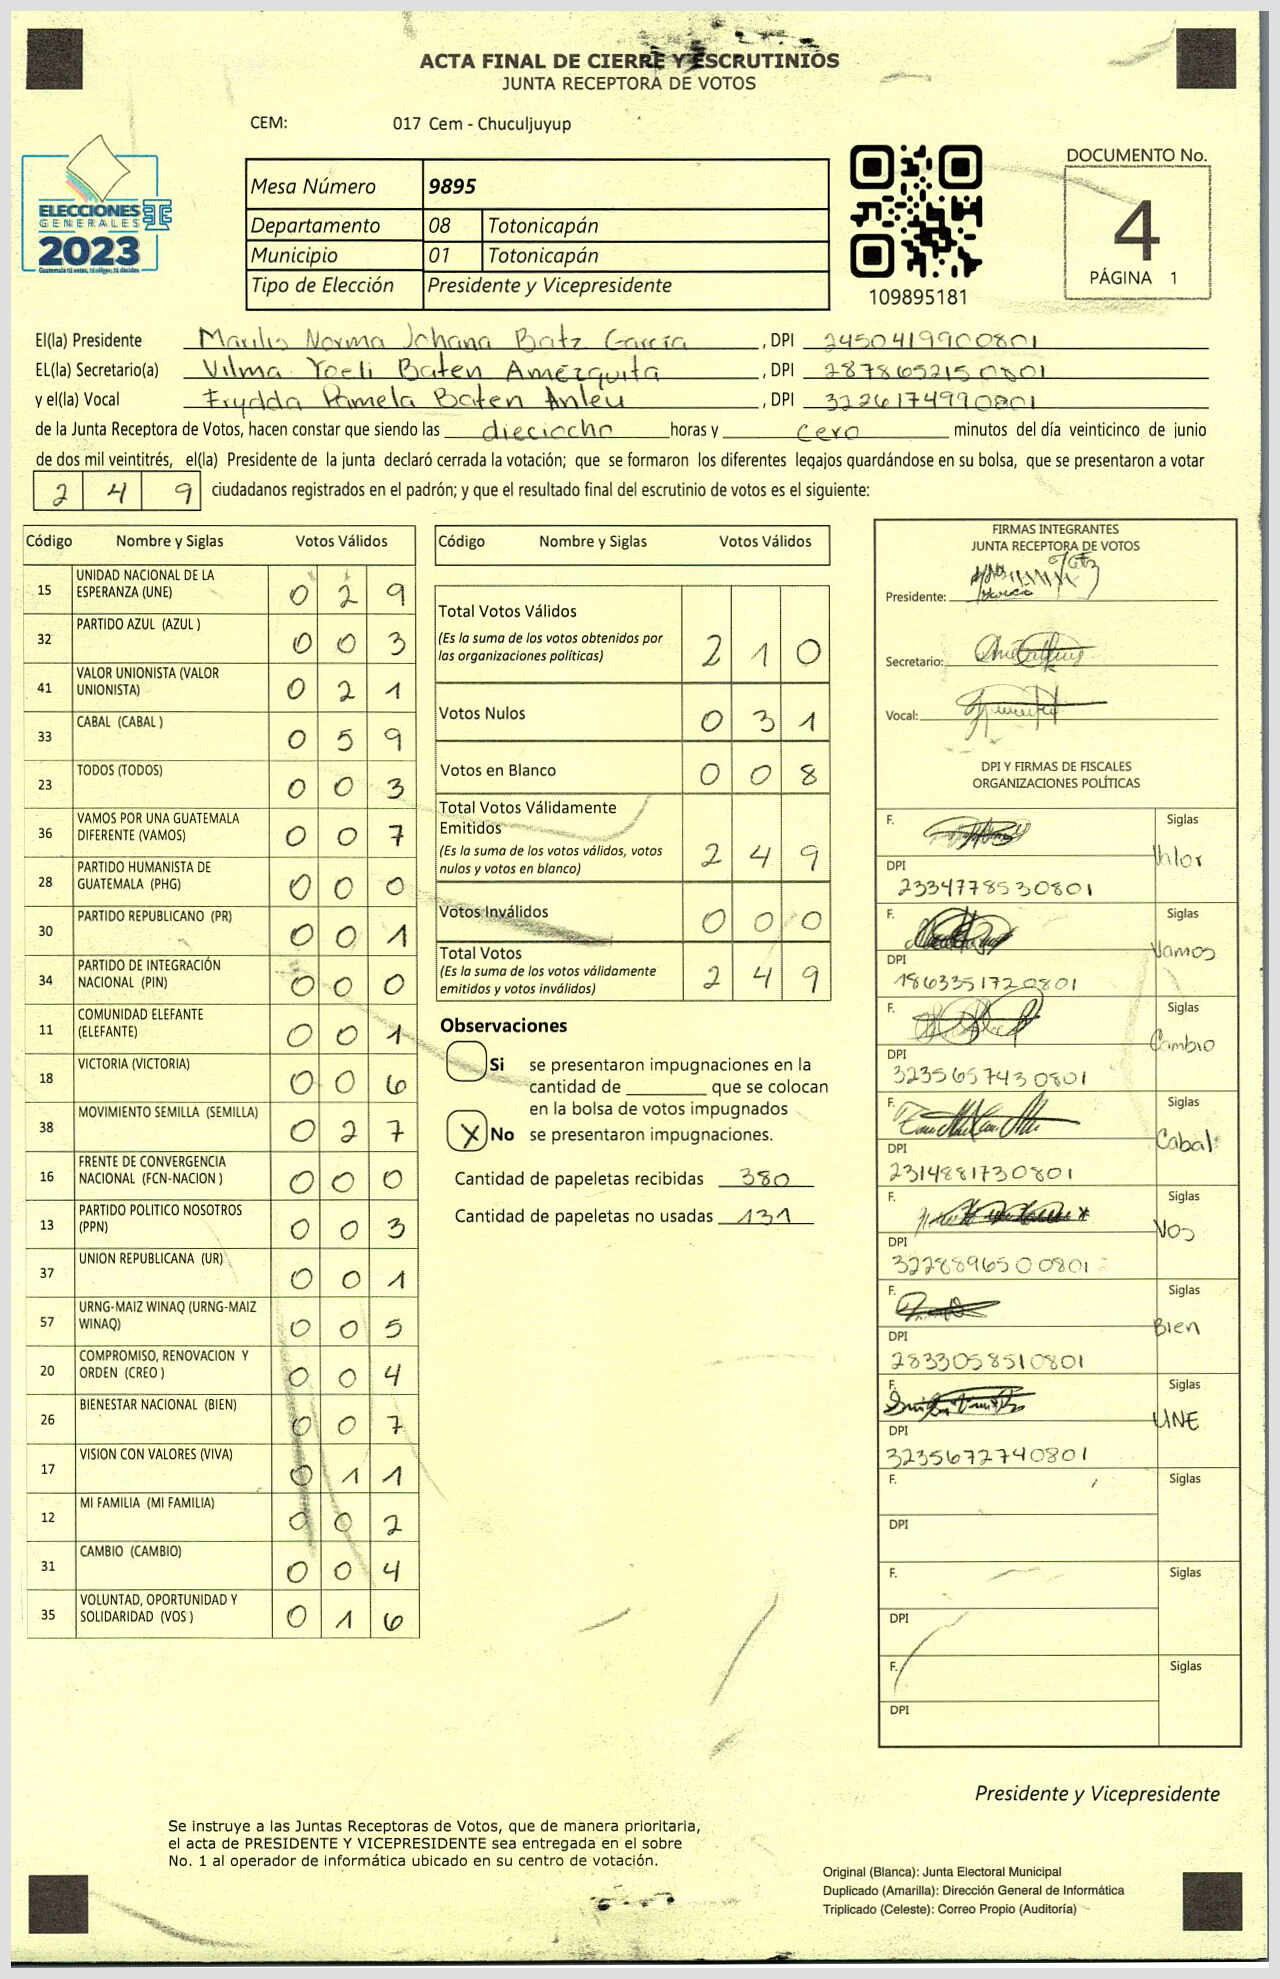 ACTA FINAL DE CIERRE Y ESCRUTINIOS
JUNTA RECEPTORA DE VOTOS
CEM: 017 Cem - Chuculjuyup
ELECCIONES
GENERALES
2023
Guatemala tú votas, tú eliges, tú decides
Mesa Número 9895
Departamento 08 Totonicapán
Municipio 01 Totonicapán
Tipo de Elección Presidente y Vicepresidente
109895181
DOCUMENTO No.
4
PÁGINA 1
El(la) Presidente Norma Johana Batz García, DPI 2450419900801
EL(la) Secretario(a) Vilma Yoeli Baten Amezquita, DPI 2878652150801
y el(la) Vocal Pamela Baten Anleu, DPI 3226174990801
de la Junta Receptora de Votos, hacen constar que siendo las dieciocho horas y cero minutos del día veinticinco de junio
de dos mil veintitrés, el(la) Presidente de la junta declaró cerrada la votación; que se formaron los diferentes legajos guardándose en su bolsa, que se presentaron a votar
2 4 9 ciudadanos registrados en el padrón; y que el resultado final del escrutinio de votos es el siguiente:
Código Nombre y Siglas Votos Válidos
15 UNIDAD NACIONAL DE LA ESPERANZA (UNE) 0 2 9
32 PARTIDO AZUL (AZUL ) 0 0 3
41 VALOR UNIONISTA (VALOR UNIONISTA) 0 2 1
33 CABAL (CABAL ) 0 5 9
23 TODOS (TODOS) 0 0 3
36 VAMOS POR UNA GUATEMALA DIFERENTE (VAMOS) 0 0 7
28 PARTIDO HUMANISTA DE GUATEMALA (PHG) 0 0 0
30 PARTIDO REPUBLICANO (PR) 0 0 1
34 PARTIDO DE INTEGRACIÓN NACIONAL (PIN) 0 0 0
11 COMUNIDAD ELEFANTE (ELEFANTE) 0 0 1
18 VICTORIA (VICTORIA) 0 0 6
38 MOVIMIENTO SEMILLA (SEMILLA) 0 2 7
16 FRENTE DE CONVERGENCIA NACIONAL (FCN-NACION ) 0 0 0
13 PARTIDO POLITICO NOSOTROS (PPN) 0 0 3
37 UNION REPUBLICANA (UR) 0 0 1
57 URNG-MAIZ WINAQ (URNG-MAIZ WINAQ) 0 0 5
20 COMPROMISO, RENOVACION Y ORDEN (CREO ) 0 0 4
26 BIENESTAR NACIONAL (BIEN) 0 0 7
17 VISION CON VALORES (VIVA) 0 1 1
12 MI FAMILIA (MI FAMILIA) 0 0 2
31 CAMBIO (CAMBIO) 0 0 4
35 VOLUNTAD, OPORTUNIDAD Y SOLIDARIDAD (VOS ) 0 1 6
Código Nombre y Siglas Votos Válidos
Total Votos Válidos 2 1 0
(Es la suma de los votos obtenidos por
las organizaciones políticas)
Votos Nulos 0 3 1
Votos en Blanco 0 0 8
Total Votos Válidamente
Emitidos
(Es la suma de los votos válidos, votos
nulos y votos en blanco) 2 4 9
Votos Inválidos 0 0 0
Total Votos
(Es la suma de los votos válidamente
emitidos y votos inválidos) 2 4 9
Observaciones
Si se presentaron impugnaciones en la
cantidad de ________ que se colocan
en la bolsa de votos impugnados
X No se presentaron impugnaciones.
Cantidad de papeletas recibidas 380
Cantidad de papeletas no usadas 131
FIRMAS INTEGRANTES
JUNTA RECEPTORA DE VOTOS
Presidente:
Secretario:
Vocal:
DPI Y FIRMAS DE FISCALES
ORGANIZACIONES POLÍTICAS
F. Siglas Valor
DPI
2334778530801
F. Siglas Vamos
DPI
1863351720801
F. Siglas Cambio
DPI
3235657430801
F. Siglas Cabal
DPI
2314881730801
F. Siglas Vos
DPI
3228896500801
F. Siglas Bien
DPI
2833058510801
F. Siglas UNE
DPI
3235672740801
F. Siglas
DPI
F. Siglas
DPI
F. Siglas
DPI
Presidente y Vicepresidente
Se instruye a las Juntas Receptoras de Votos, que de manera prioritaria,
el acta de PRESIDENTE Y VICEPRESIDENTE sea entregada en el sobre
No. 1 al operador de informática ubicado en su centro de votación.
Original (Blanca): Junta Electoral Municipal
Duplicado (Amarilla): Dirección General de Informática
Triplicado (Celeste): Correo Propio (Auditoría)